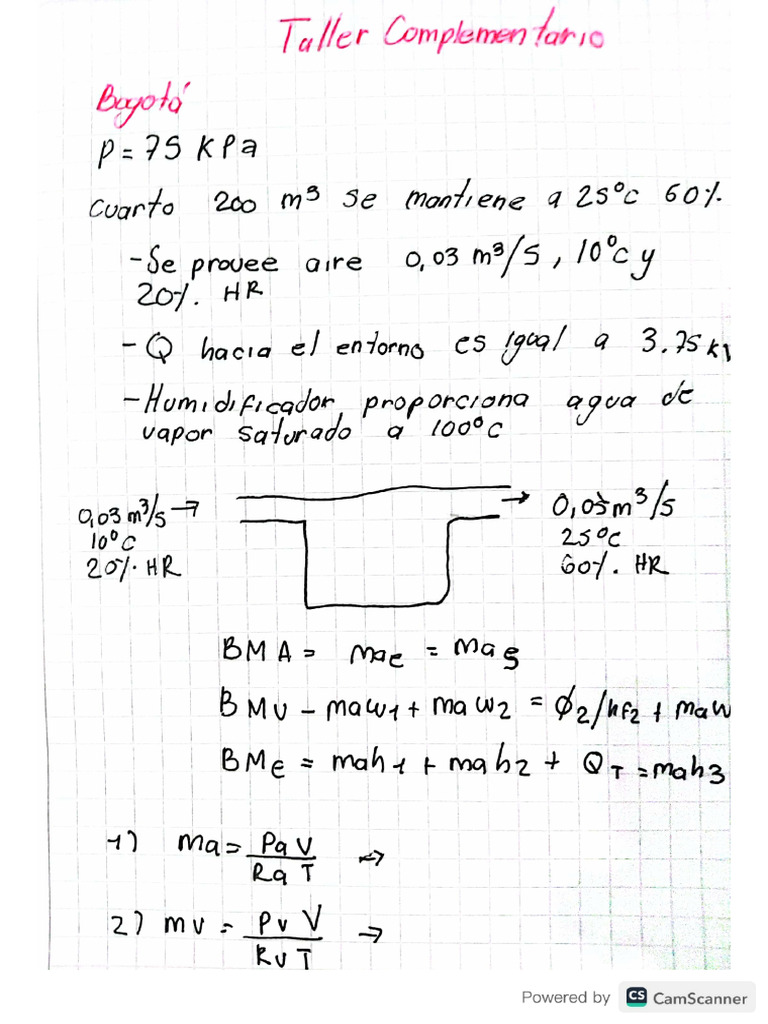 Taller Complementario
Bogotá
P = 75 KPa
Cuarto 200 m³ se mantiene a 25°C 60%.
- Se provee aire 0,03 m³/S, 10°C y
20%. HR
- Q hacia el entorno es igual a 3.75 k
- Humidificador proporciona agua de
vapor saturado a 100°C
0,03 m³/s →
10°C
20%. HR
→ 0,05 m³/s
25°C
60%. HR
BMA = mae = mas
BMV - maw1 + maw2 = φ2/hf2 + maw
BMe = mah1 + mah2 + QT = mah3
1) ma = Pa V / Ra T →
2) mv = Pv V / Rv T →
Powered by CS CamScanner